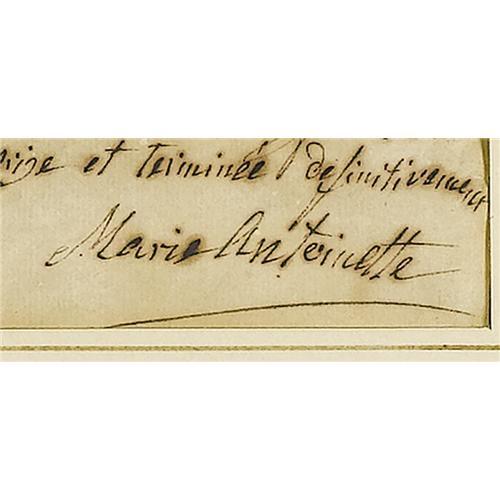 et terminée definitivement
Marie Antoinette